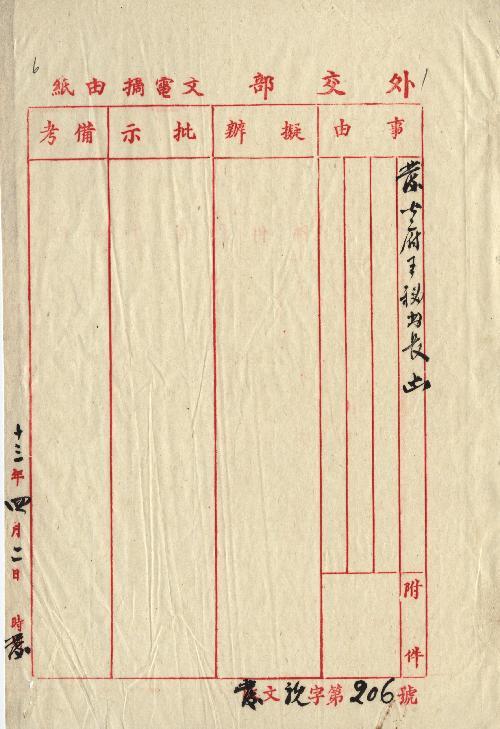 外交部文電摘由紙
6
1
事由
擬辦
批示
備考
發公府王秘书長函
附件
發文字第206號
十三年四月二日 時發